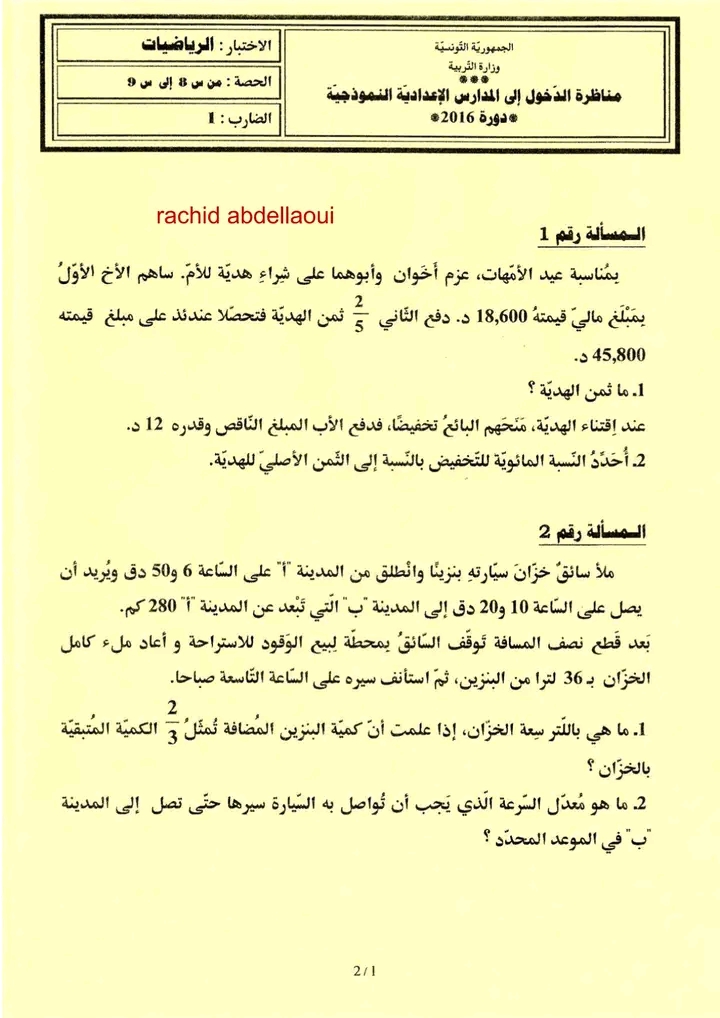 الجمهوريّة التّونسيّة
وزارة التّربية
***
مناظرة الدّخول إلى المدارس الإعداديّة النّموذجيّة
*دورة 2016*
الاختبار : الرياضيات
الحصة : من س 8 إلى س 9
الضارب : 1
rachid abdellaoui
المسألة رقم 1
بِمُناسبة عيد الأمّهات، عزم أَخَوان وأبوهما على شِراءِ هديّة للأمّ. ساهم الأخ الأوّلُ
بِمَبْلَغ ماليّ قيمتهُ 18,600 د. دفع الثّاني 2/5 ثمن الهديّة فتحصّلا عندئذ على مبلغ قيمته
45,800 د.
1. ما ثمن الهديّة ؟
عند اِقتناء الهديّة، مَنَحَهم البائعُ تخفيضًا، فدفع الأب المبلغ النّاقص وقدره 12 د.
2. أُحَدِّدُ النّسبة المائويّة للتّخفيض بالنّسبة إلى الثّمن الأصليّ للهديّة.
المسألة رقم 2
ملأ سائقٌ خزّانَ سيّارتهِ بنزينًا وانْطلق من المدينة "أ" على السّاعة 6 و50 دق ويُريد أن
يصل على السّاعة 10 و20 دق إلى المدينة "ب" الّتي تَبْعد عن المدينة "أ" 280 كم.
بَعد قَطع نصف المسافة تَوقّف السّائقُ بِمحطّة لِبيع الوَقود للاستراحة و أعاد ملء كامل
الخزّان بـ 36 لترا من البنزين، ثمّ استأنف سيره على السّاعة التّاسعة صباحا.
1. ما هي باللّتر سِعة الخزّان، إذا علمت أنّ كميّة البنزين المُضافة تُمثّلُ 2/3 الكميّة المُتبقيّة
بالخزّان ؟
2. ما هو مُعدّل السّرعة الّذي يَجب أن تُواصل به السّيارة سيرها حتّى تصل إلى المدينة
"ب" في الموعد المحدّد ؟
2/1